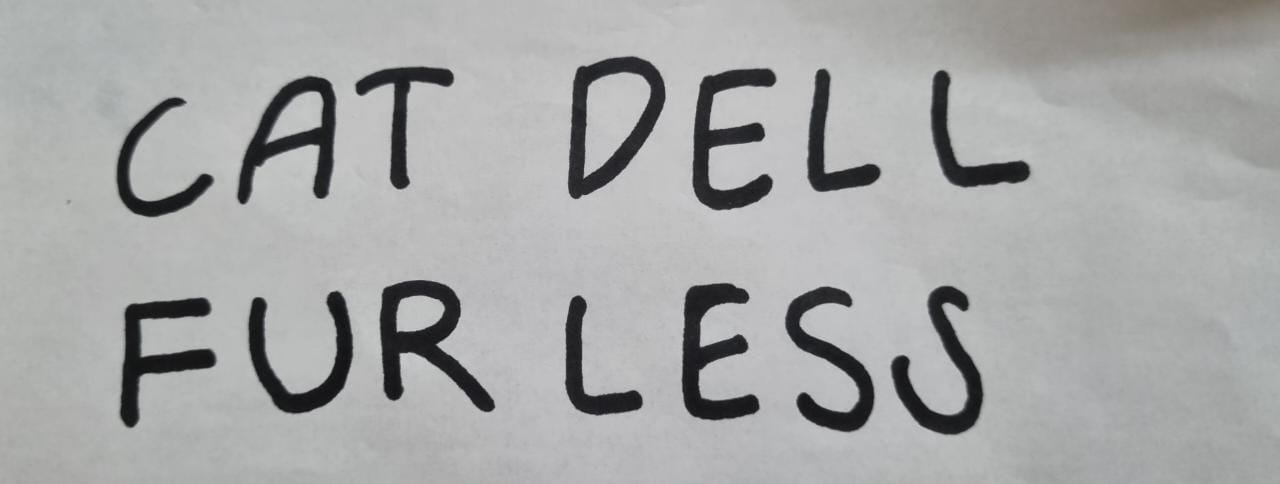 CAT DELL
FUR LESS